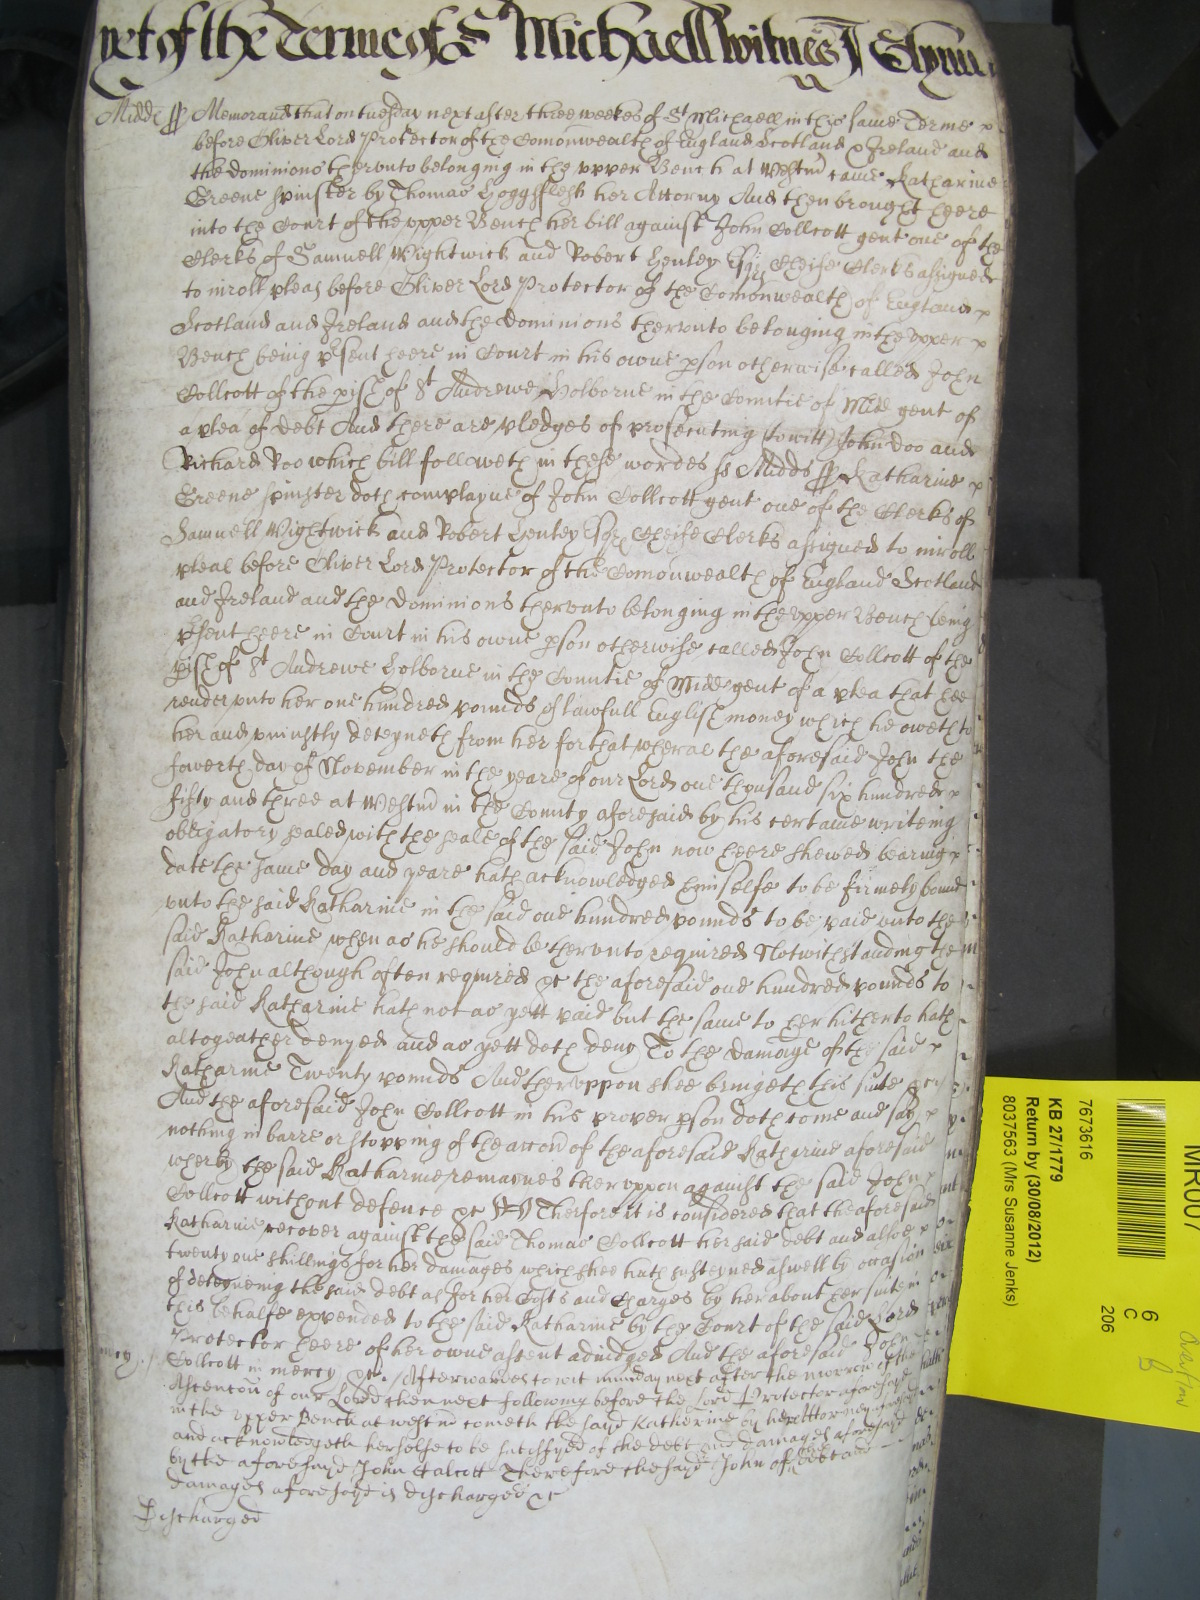 yet of the Terme of St Michaell witnes J Glynn
Midds ss Memorand that on tuesday next after three weekes of St Michaell in this same Terme
before Oliver Lord Protector of the Comonwealth of England Scotland & Ireland and
the dominions therunto belonging in the upper Bench at Westm came Katharine
Greene spinster by Thomas Hoggsflesh her Attorny And then brought heere
into the Court of the upper Bench her bill against John Collcott gent one of the
Clerks of Samuell Wightwick and Robert Henley Esqrs Cheife Clerks assigned
to inroll pleas before Oliver Lord Protector of the Comonwealth of England
Scotland and Ireland and the Dominions therunto belonging in the upper
Bench being psent heere in Court in his owne pson otherwise called John
Collcott of the pish of St Andrewe Holborne in the Countie of Midd gent of
a plea of debt And there are pledges of prosecuting (to witt) John Doo and
Richard Roo which bill followeth in these wordes ss Midds ss Katharine
Greene spinster doth complayne of John Collcott gent one of the Clerks of
Samuell Wightwick and Robert Henley Esqrs Cheife Clerks assigned to inroll
pleas before Oliver Lord Protector of the Comonwealth of England Scotland
and Ireland and the Dominions therunto belonging in the upper Bench being
psent heere in Court in his owne pson otherwise called John Collcott of the
pish of St Andrewe Holborne in the Countie of Midd gent of a plea that hee
render unto her one hundred pounds of lawfull English money which he oweth to
her and uniustly deteyneth from her for that wheras the aforesaid John the
fowerth day of November in the yeare of our Lord one thousand six hundred
fifty and three at Westm in the County aforesaid by his certaine writeing
obligatory sealed with the seale of the said John now heere shewed bearing
date the same day and yeare hath acknowledged himselfe to be firmely bound
unto the said Katharine in the said one hundred pounds to be paid unto the
said Katharine when as he should be therunto required Notwithstanding the
said John although often required &c the aforesaid one hundred pounds to
the said Katharine hath not as yett paid but the same to her hitherto hath
altogeather denyed and as yett doth deny To the damage of the said
Katharine Twenty pounds And theruppon shee bringeth this suite &c
And the aforesaid John Collcott in his proper pson doth come and say
nothing in barre or stopping of the accon of the aforesaid Katharine aforesaid
wherby the said Katharine remaynes theruppon against the said John
Collcott without defence &c Therfore it is considered that the aforesaid
Katharine recover against the said Thomas Collcott her said debt and alsoe
twenty one shillings for her damages which shee hath susteyned aswell by occasion
of deteyneing the said debt as for her Costs and Charges by her about her suite in
this behalfe expended to the said Katharine by the Court of the said Lord
Protector heere of her owne assent adiudged And the aforesaid John
Collcott in mercy &c. Afterwardes to wit munday next after the morrow of the
Ascencon of our Lord then next following before the Lord Protector aforesayd
in the Upper Bench at westm cometh the sayd Katherine by her Attorney
and acknowledgeth herselfe to be satisfyed of the debt and damages aforesayd
by the aforesayd John Calcott Therefore the sayd John of the debt and
damages aforesayd is discharged &c
Discharged
7673616
KB 27/1779
Return by (30/08/2012)
8037563 (Mrs Susanne Jenks)
MR007
6
C
206